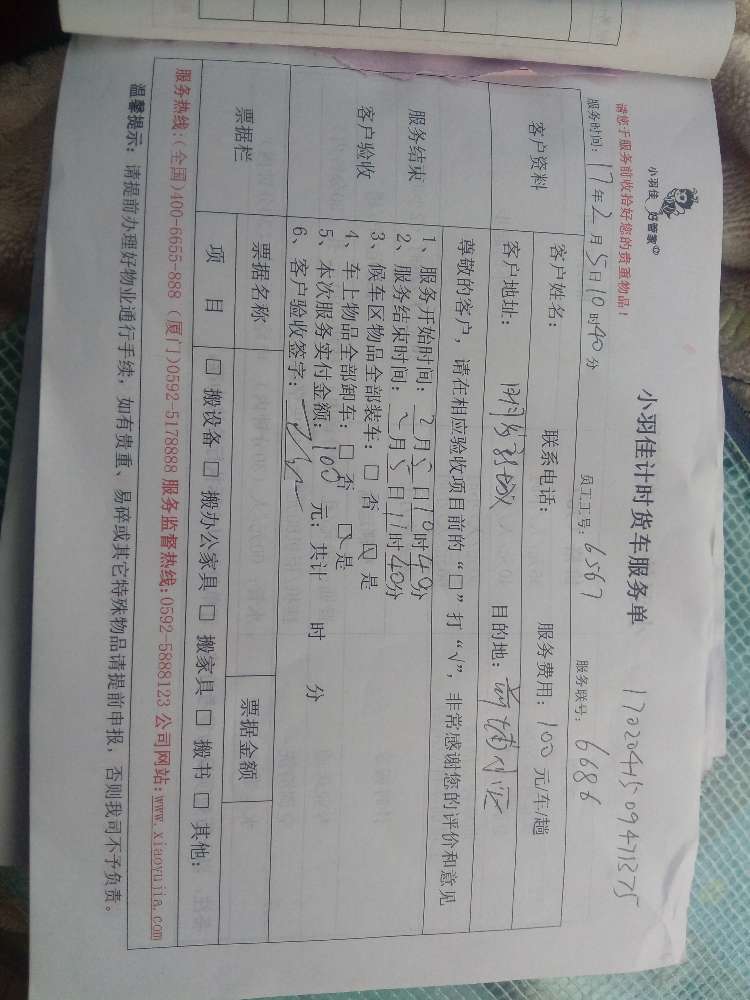 小羽佳 好管家
小羽佳计时货车服务单
请您于服务前收拾好您的贵重物品！
服务时间：17年2月5日10时40分 员工工号：6567 服务联号：6686
客户资料
客户姓名： 联系电话： 服务费用：100元/车/趟
客户地址： 目的地：前埔小区
尊敬的客户，请在相应验收项目前的“□”打“√”，非常感谢您的评价和意见
服务结束
客户验收
1、服务开始时间：2月5日10时40分
2、服务结束时间：2月5日11时40分
3、候车区物品全部装车：□ 否 ☑ 是
4、车上物品全部卸车：□ 否 ☑ 是
5、本次服务实付金额：100元；共计 时 分
6、客户验收签字：
票据栏
票据名称 票据金额
项 目 □ 搬设备 □ 搬办公家具 □ 搬家具 □ 搬书 □ 其他：
服务热线：(全国)400-6655-888 (厦门)0592-5178888 服务监督热线：0592-5888123 公司网站：www.xiaoyujia.com
温馨提示：请提前办理好物业通行手续，如有贵重、易碎或其它特殊物品请提前申报，否则我司不予负责。